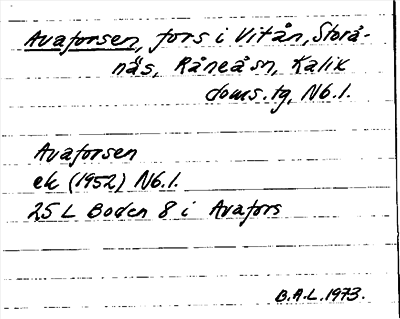 Avaforsen, fors i Vitån, Storå-
näs, Råneå sn, Kalix
doms.tg, Nb.l.
Avaforsen
ek (1952) Nb.l.
25 L Boden 8 i Avafors
B.A-L.1973.